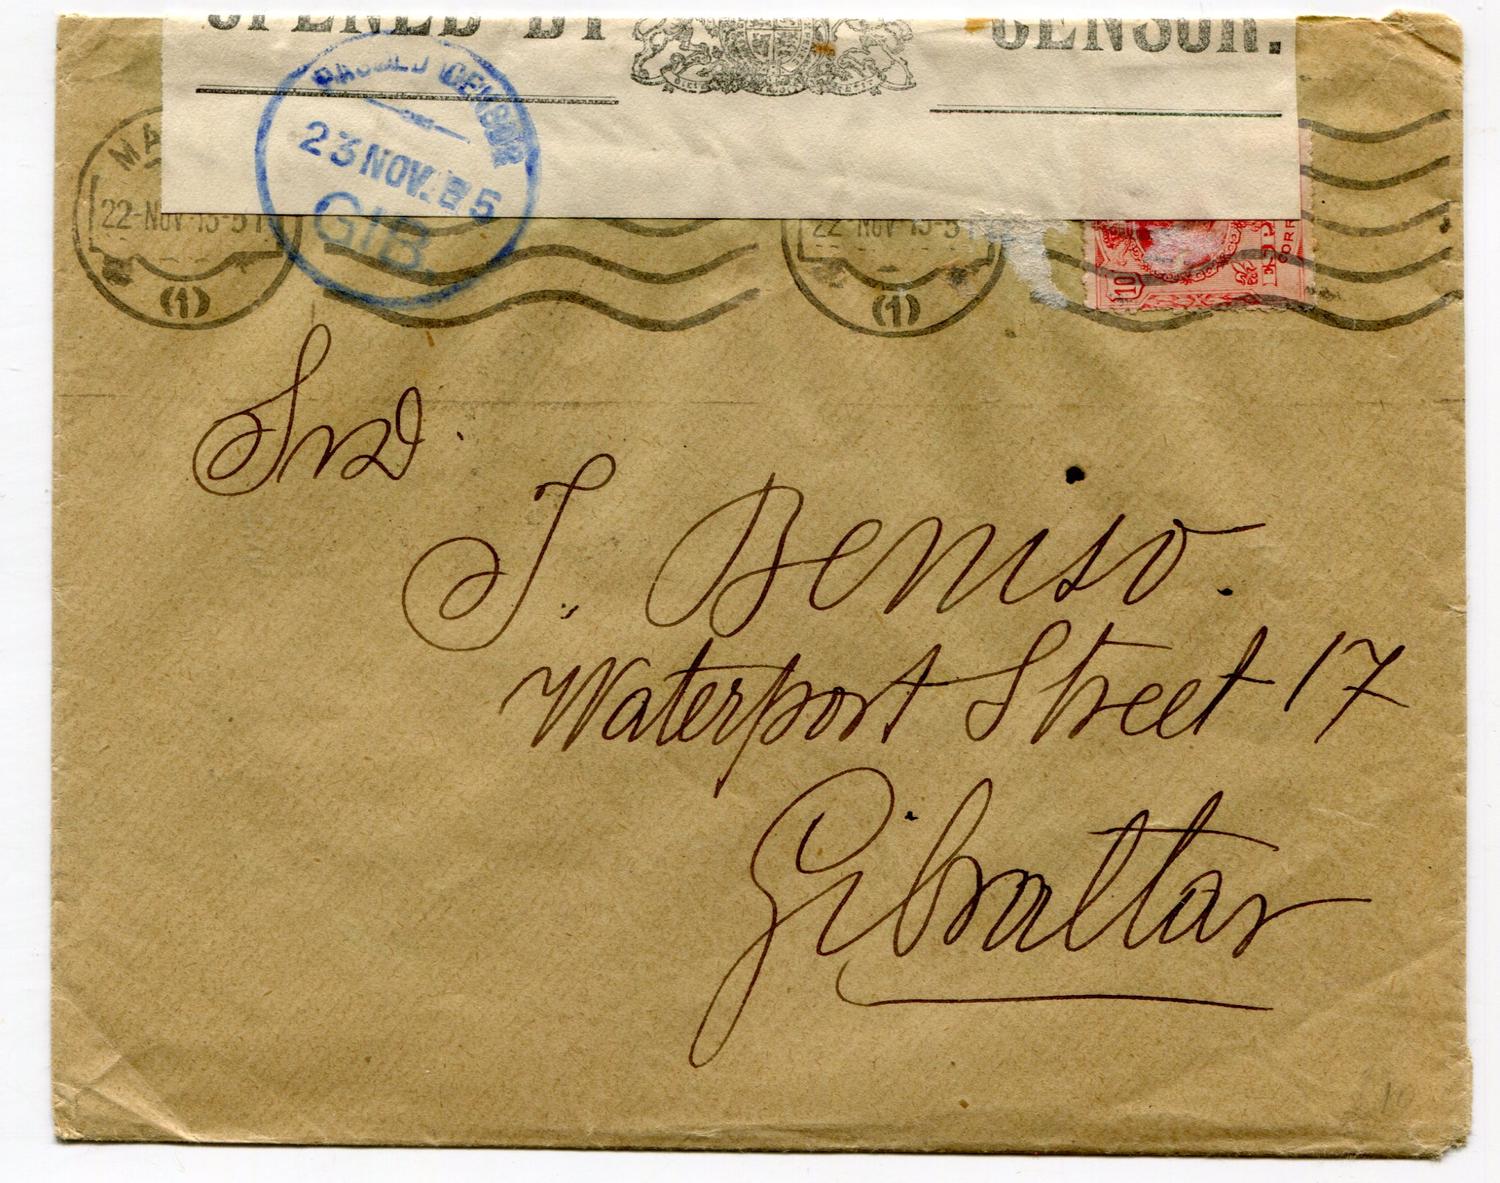 OPENED BY CENSOR.
PASSED CENSOR
23 NOV. 5
GIB.
MA
22-NOV-15-5T
(1)
22-NOV-15-5T
(1)
10
CORR
Srd.
J. Beniso.
Waterport Street 17
Gibraltar